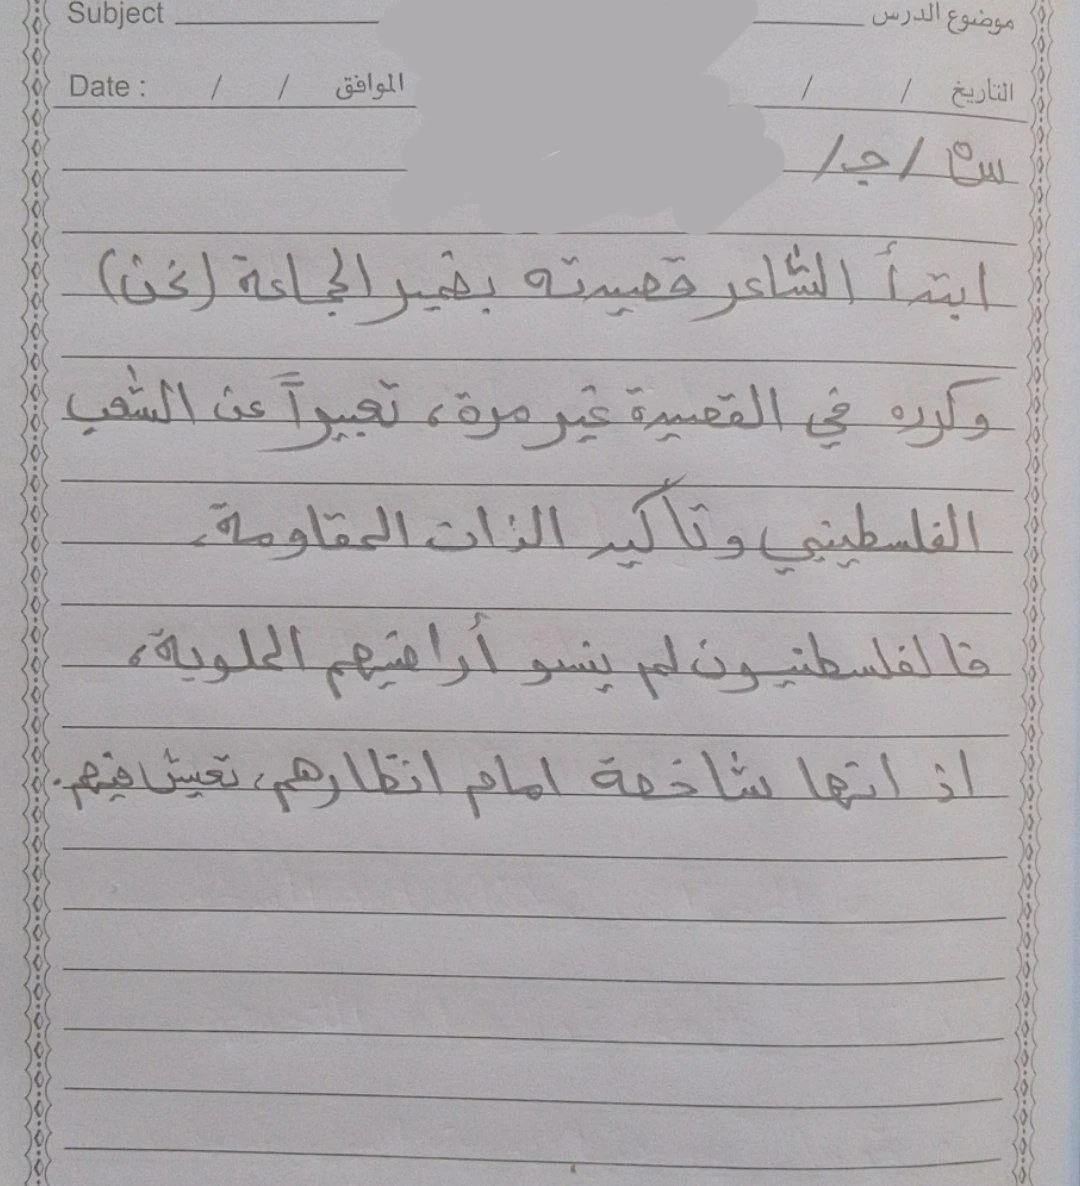 Subject موضوع الدرس
Date : / / الموافق / / التاريخ
س٥ / ج/
ابتدأ الشاعر قصيدته بضمير الجماعة (نحن)
وكرره في القصيدة غير مرة، تعبيراً عن الشعب
الفلسطيني وتأكيد الذات المقاومة.
فالفلسطنيون لم ينسو أراضيهم المحلوبة،
اذ انها شاخصة امام انظارهم، تعيش فيهم.